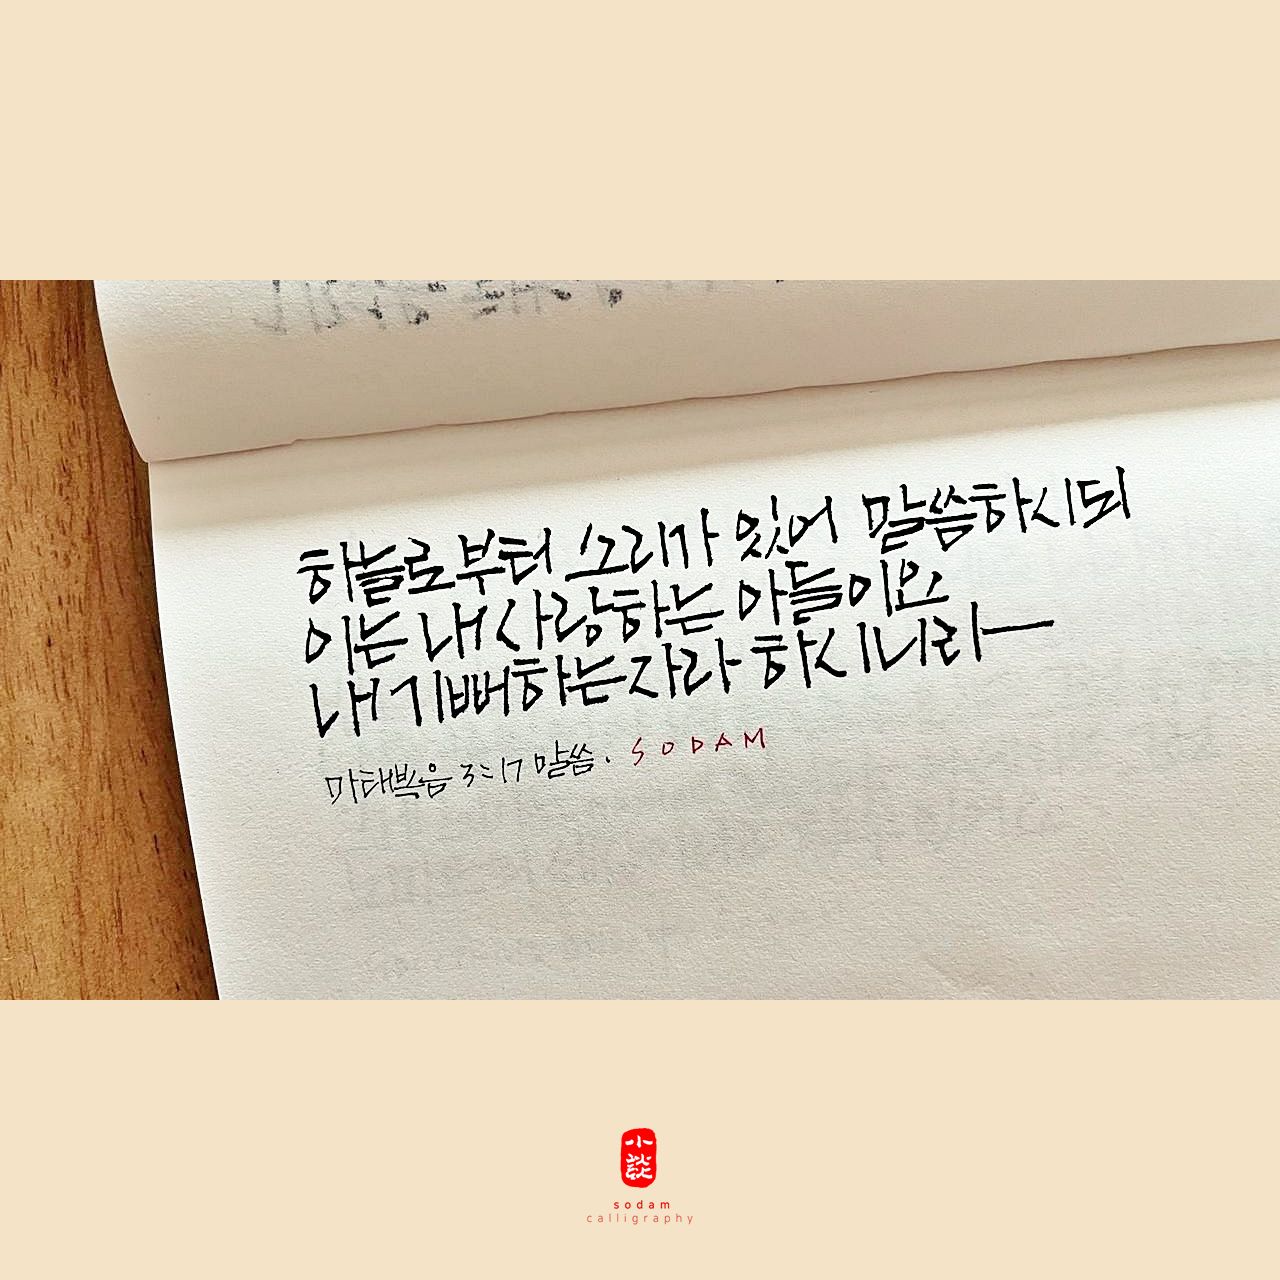 하늘로부터 소리가 있어 말씀하시되
이는 내 사랑하는 아들이요
내 기뻐하는 자라 하시니라
마태복음 3:17 말씀. SODAM
小談
sodam
calligraphy